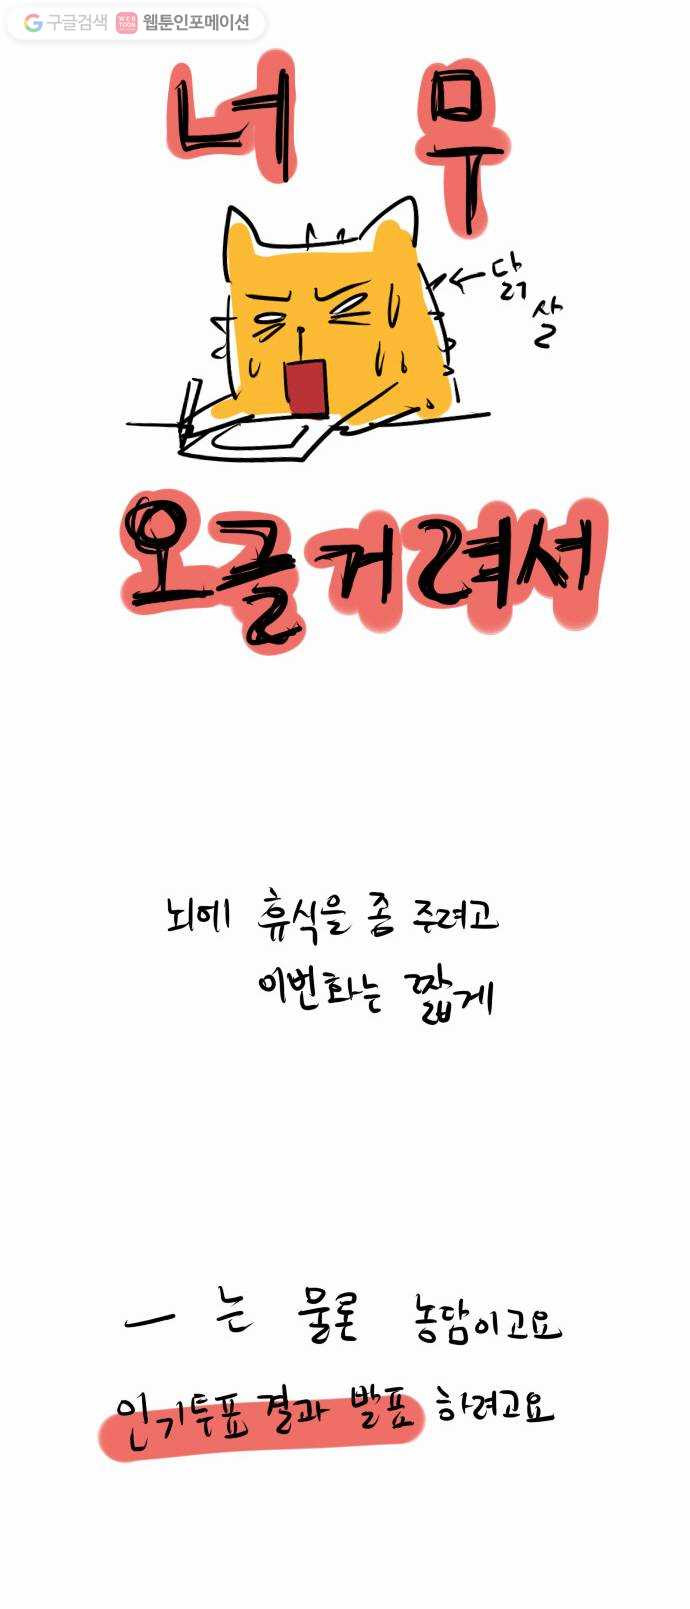 구글검색 WEB TOON 웹툰인포메이션
너 무
닭
살
오글거려서
뇌에 휴식을 좀 주려고
이번화는 짧게
ㅡ 는 물론 농담이고요
인기투표 결과 발표 하려고요